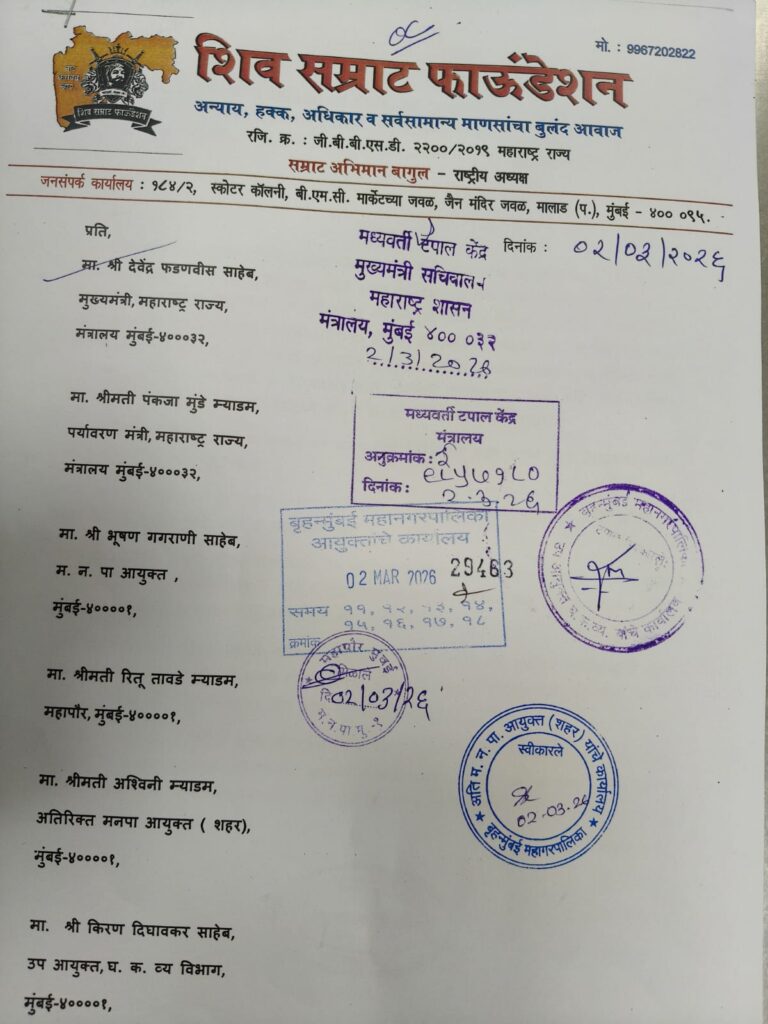 मो. : 9967202822
शिव सम्राट फाऊंडेशन
शिव सम्राट फाऊंडेशन
अन्याय, हक्क, अधिकार व सर्वसामान्य माणसांचा बुलंद आवाज
रजि. क्र. : जी.बी.बी.एस.डी. २२००/२०१९ महाराष्ट्र राज्य
सम्राट अभिमान बागुल - राष्ट्रीय अध्यक्ष
जनसंपर्क कार्यालय : १८४/२, स्कोटर कॉलनी, बी.एम.सी. मार्केटच्या जवळ, जैन मंदिर जवळ, मालाड (प.), मुंबई - ४०० ०९५.
दिनांक : ०२/०३/२०२६
प्रति,
मा. श्री देवेंद्र फडणवीस साहेब,
मुख्यमंत्री, महाराष्ट्र राज्य,
मंत्रालय मुंबई-४०००३२,
मध्यवर्ती टपाल केंद्र
मुख्यमंत्री सचिवालय
महाराष्ट्र शासन
मंत्रालय, मुंबई ४०० ०३२
2/3/2026
मा. श्रीमती पंकजा मुंडे म्याडम,
पर्यावरण मंत्री, महाराष्ट्र राज्य,
मंत्रालय मुंबई-४०००३२,
मध्यवर्ती टपाल केंद्र
मंत्रालय
अनुक्रमांक :
दिनांक : 2.3.२६
मा. श्री भूषण गगराणी साहेब,
म. न. पा आयुक्त ,
मुंबई-४००००१,
बृहन्मुंबई महानगरपालिका
आयुक्तांचे कार्यालय
02 MAR 2026 29463
समय ११, १२, १३, १४,
१५, १६, १७, १८
क्रमांक
बृहन्मुंबई महानगरपालिका
मा. श्रीमती रितू तावडे म्याडम,
महापौर, मुंबई-४००००१,
महापौर मुंबई
दि 02/03/२६
म.न.पा मु.-१
मा. श्रीमती अश्विनी म्याडम,
अतिरिक्त मनपा आयुक्त ( शहर),
मुंबई-४००००१,
अति म. न. पा. आयुक्त (शहर) यांचे कार्यालय
स्वीकारले
02-03-26
बृहन्मुंबई महागरपालिका
मा. श्री किरण दिघावकर साहेब,
उप आयुक्त, घ. क. व्य विभाग,
मुंबई-४००००१,